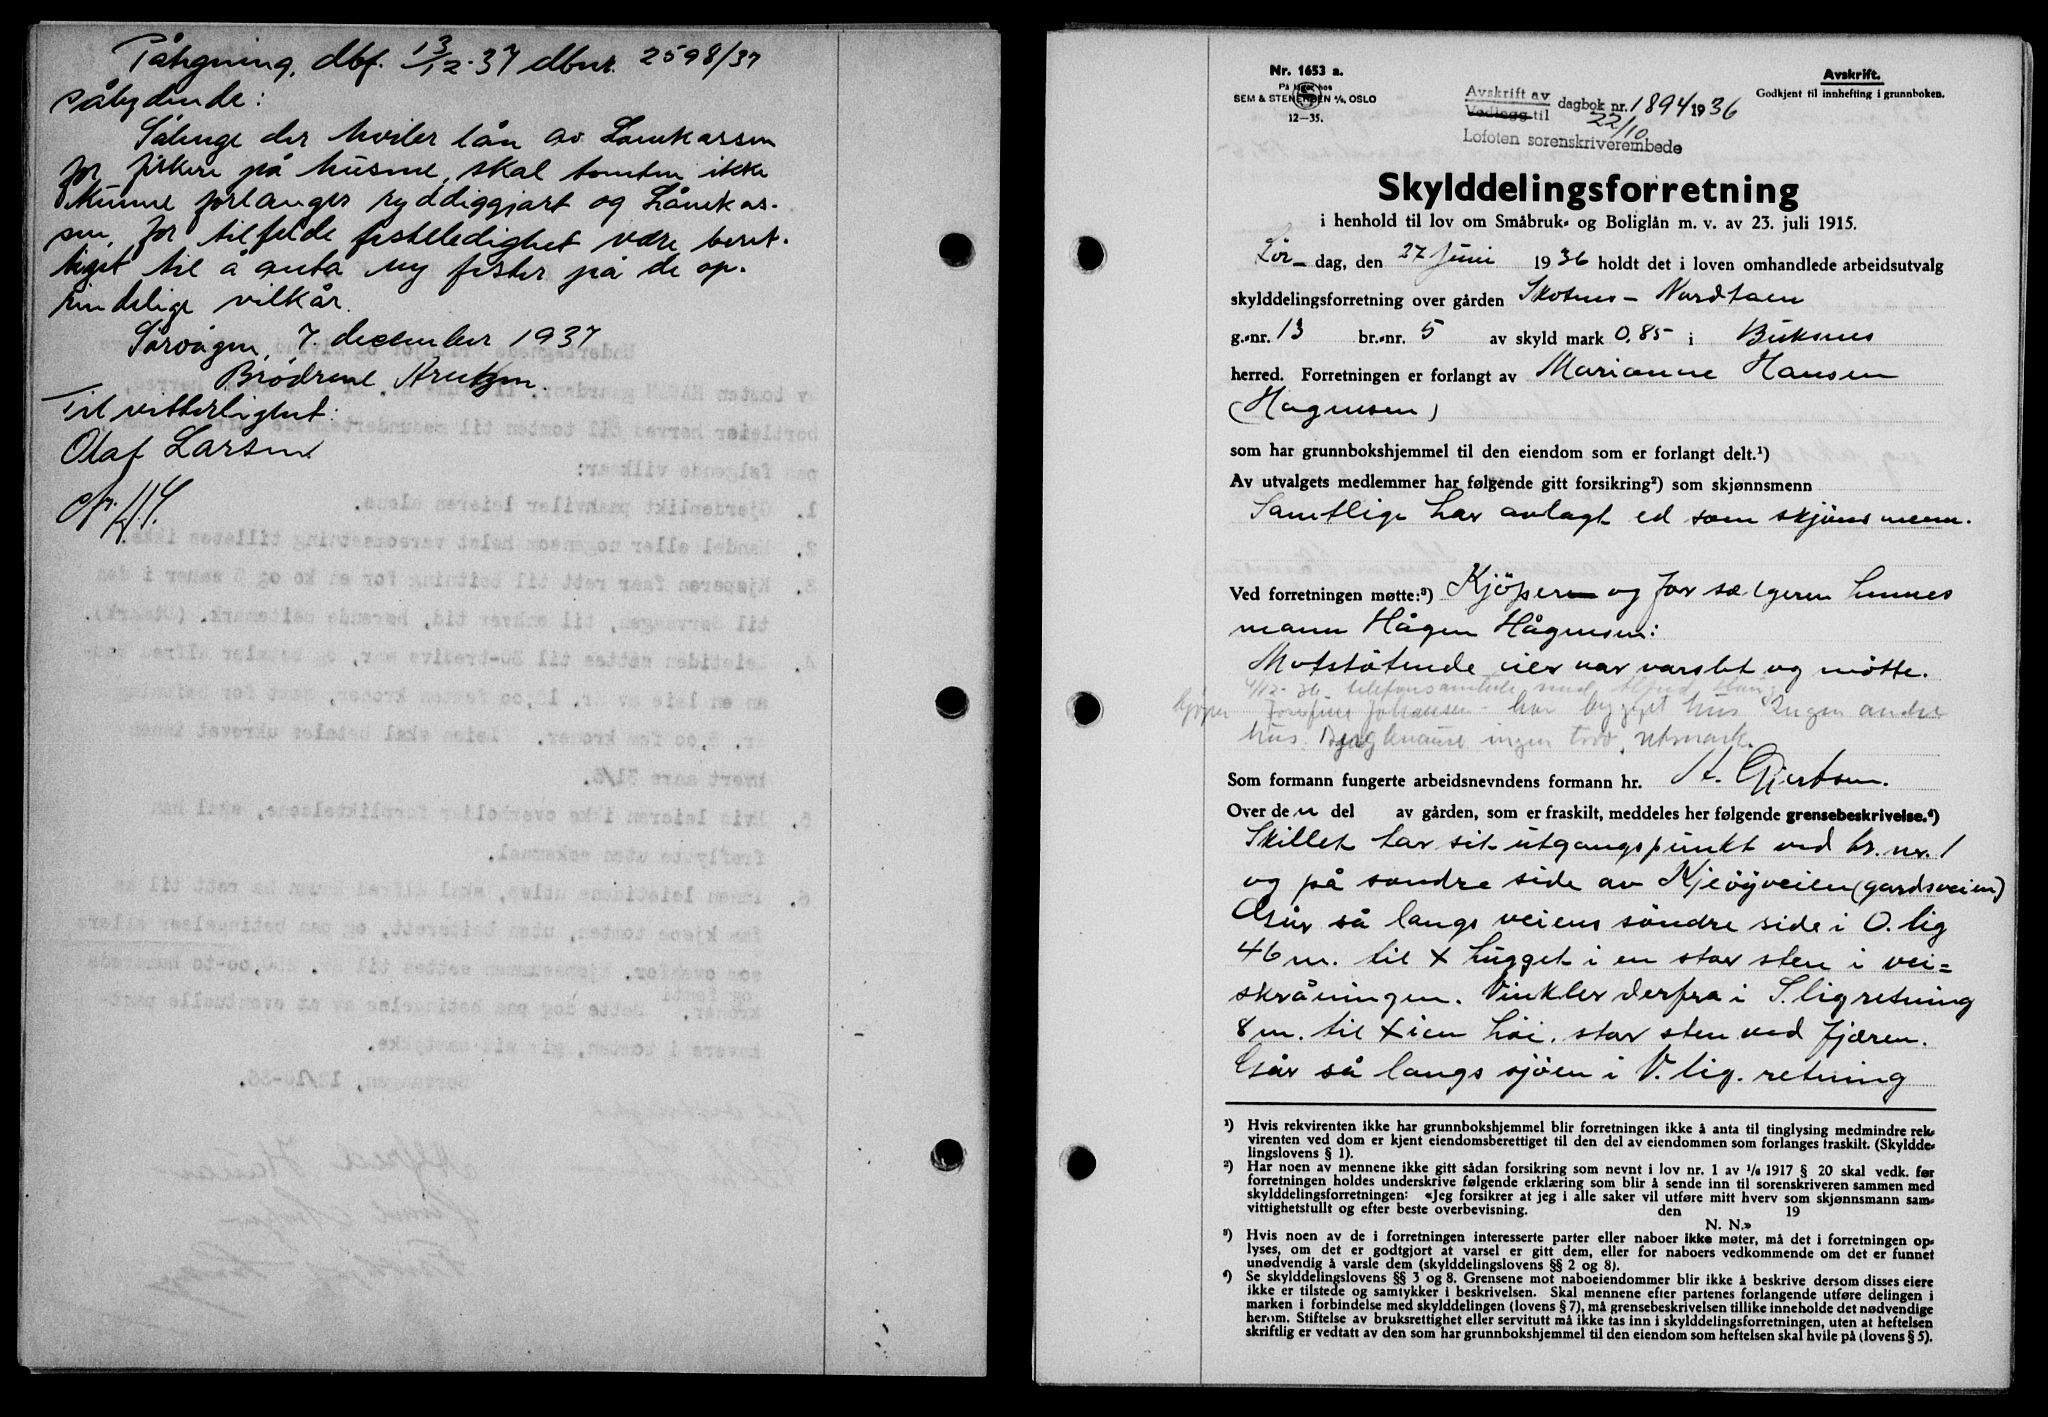 Påtegning, dbf. 13/12-37 dbnr. 2598/37
sålydende:
Sålenge der hviler lån av Lånekassen
for fiskere på husene, skal tomten ikke
kunne forlanges ryddiggjort og Lånekas-
sen, for tilfelde festeledighet være beret-
tiget til å anta ny fester på de op-
rindelige vilkår.
Sørvågen, 7. december 1937
Brødrene
Til vitterlighet:
Olaf Larsen
Nr. 1653 a.
På lager hos
SEM & STENERSEN A/S, OSLO
12-35.
Avskrift av
Vedlegg til dagbok nr. 1894 1936
22/10
Lofoten sorenskriverembede
Avskrift.
Godkjent til innhefting i grunnboken.
Skylddelingsforretning
i henhold til lov om Småbruk- og Boliglån m. v. av 23. juli 1915.
Lør-dag, den 27 Juni 1936 holdt det i loven omhandlede arbeidsutvalg
skylddelingsforretning over gården Skotnes - Nordtoen
g.-nr. 13 br.-nr. 5 av skyld mark 0,85 i Buksnes
herred. Forretningen er forlangt av Marianne Hansen
(Hagensen)
som har grunnbokshjemmel til den eiendom som er forlangt delt.¹)
Av utvalgets medlemmer har følgende gitt forsikring²) som skjønnsmenn
Samtlige har avlagt ed som skjønsmenn.
Ved forretningen møtte:³) Kjöperen og for sælgeren hennes
mann Hågen Hågensen:
Motstøtende eier var varslet og møtte.
4/12-36 telefonsamtale med Alfred
kjøper Josefine Johansen - har bygget hus Ingen andre
hus. ingen torv, utmark.
Som formann fungerte arbeidsnevndens formann hr. A. Gjertsen.
Over den del av gården, som er fraskilt, meddeles her følgende grensebeskrivelse.⁴)
Skillet har sit utgangspunkt ved br. nr. 1
og på søndre side av Kjeöyveien (gardsveien)
Går så langs veiens søndre side i O. lig
46 m. til x hugget i en stor sten i vei=
skråningen. Vinkler derfra i S. lig retning
8 m. til x i en høi, stor sten ved fjæren.
Går så langs sjøen i V. lig. retning
¹) Hvis rekvirenten ikke har grunnbokshjemmel blir forretningen ikke å anta til tinglysing medmindre rek-
virenten ved dom er kjent eiendomsberettiget til den del av eiendommen som forlanges fraskilt. (Skyldde-
lingslovens § 1).
²) Har noen av mennene ikke gitt sådan forsikring som nevnt i lov nr. 1 av 1/6 1917 § 20 skal vedk. før
forretningen holdes underskrive følgende erklæring som blir å sende inn til sorenskriveren sammen med
skylddelingsforretningen: «Jeg forsikrer at jeg i alle saker vil utføre mitt hverv som skjønnsmann sam-
vittighetsfullt og efter beste overbevisning. den 19
N. N.»
³) Hvis noen av de i forretningen interesserte parter eller naboer ikke møter, må det i forretningen op-
lyses, om det er godtgjort at varsel er gitt dem, eller for naboers vedkommende om det er funnet
unødvendig å varsle dem (skylddelingslovens §§ 2 og 8).
⁴) Se skylddelingslovens §§ 3 og 8. Grensene mot naboeiendommer blir ikke å beskrive dersom disses eiere
ikke er tilstede og samtykker i beskrivelsen. Skal mennene efter partenes forlangende utføre delingen i
marken i forbindelse med skylddelingen (lovens § 7), må grensebeskrivelsen tillike inneholde det nødvendige
herom. Stiftelse av bruksrettighet eller servitutt må ikke tas inn i skylddelingsforretningen, uten at heftelsen
skriftlig er vedtatt av den som har grunnbokshjemmel til den eiendom som heftelsen skal hvile på (lovens § 5).